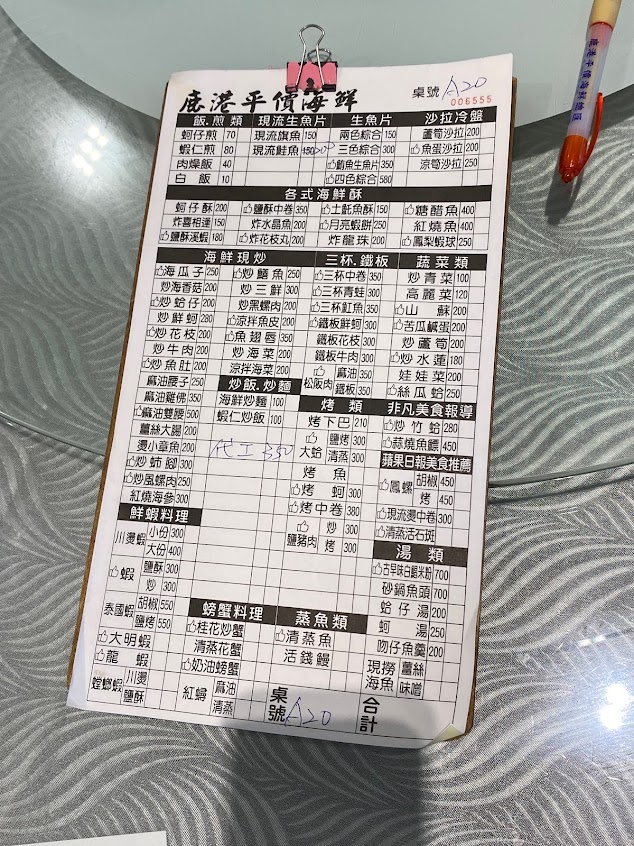 鹿港平價海鮮
桌號 A20
006555
飯.煎類 現流生魚片 生魚片 沙拉冷盤
蚵仔煎 70 現流旗魚 150 兩色綜合 150 蘆筍沙拉 200
蝦仁煎 80 現流鮭魚 三色綜合 300 魚蛋沙拉 200
肉燥飯 40 鮪魚生魚片 350 涼筍沙拉 250
白飯 10 四色綜合 580
各式海鮮酥
蚵仔酥 200 鹽酥中卷 350 土魠魚酥 150 糖醋魚 400
炸喜相逢 150 炸水晶魚 200 月亮蝦餅 250 紅燒魚 400
鹽酥溪蝦 180 炸花枝丸 200 炸龍珠 200 鳳梨蝦球 250
海鮮現炒 三杯.鐵板 蔬菜類
海瓜子 250 炒鱔魚 250 三杯中卷 350 炒青菜 100
炒海香菇 200 炒三鮮 300 三杯青蛙 300 高麗菜 120
炒蛤仔 200 炒黑螺肉 200 三杯魟魚 300 山蘇 200
炒鮮蚵 280 涼拌魚皮 200 鐵板鮮蚵 300 苦瓜鹹蛋 200
炒花枝 200 魚翅唇 350 鐵板花枝 300 炒蘆筍 200
炒牛肉 200 炒海菜 200 鐵板牛肉 300 炒水蓮 180
炒魚肚 200 涼拌海菜 200 松阪肉 麻油 350 娃娃菜 200
麻油腰子 250 炒飯.炒麵 鐵板 350 絲瓜蛤 250
麻油雞佛 350 海鮮炒麵 100 烤類 非凡美食報導
麻油雙腰 500 蝦仁炒飯 100 烤下巴 210 炒竹蛤 280
薑絲大腸 200 大蛤 鹽烤 300 蒜燒魚鰾 450
燙小章魚 200 代工350 清蒸 300 蘋果日報美食推薦
炒𩵚腳 300 烤魚 鳳螺 胡椒 450
炒風螺肉 250 烤蚵 300 烤 450
紅燒海參 300 烤中卷 380 現流燙中卷 300
鮮蝦料理 鹽豬肉 炒 300 清蒸活石斑
川燙蝦 小份 300 烤 300 湯類
大份 400 古早味白鯧米粉 700
蝦 鹽酥 300 砂鍋魚頭 700
炒 300 蛤仔湯 200
泰國蝦 胡椒 550 螃蟹料理 蒸魚類 蚵湯 250
鹽烤 550 桂花炒蟹 清蒸魚 吻仔魚羹 200
大明蝦 清蒸花蟹 活錢鰻 現撈海魚 薑絲
龍蝦 奶油螃蟹 味噌
螳螂蝦 川燙 紅蟳 麻油 桌號 A20 合計
鹽酥 清蒸
鹿港平價海鮮